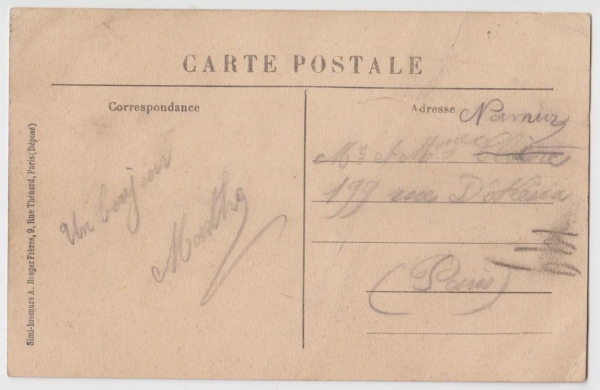 CARTE POSTALE
Correspondance
Adresse
Namur
Mr et Mme
199 rue D'Alésia
(Paris)
Un bonjour
Marthe
Simi-bromure A. Breger Frères, 9, Rue Thénard, Paris (Déposé)